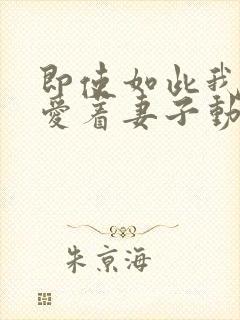 即使如此我
愛着妻子動
朱京海